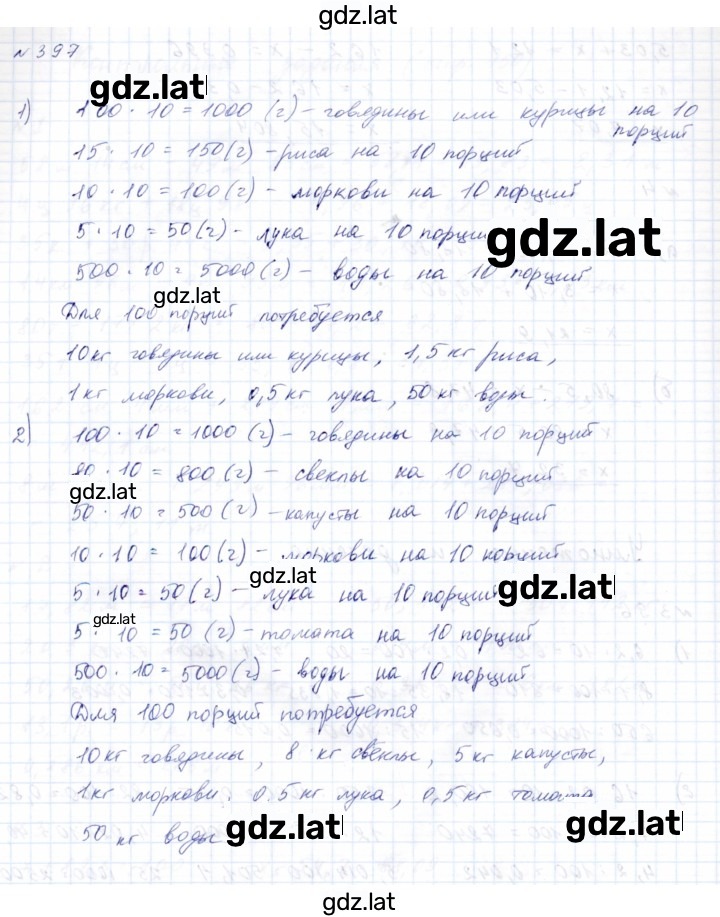 gdz.lat
№ 397
gdz.lat
1) 100 · 10 = 1000 (г) – говядины или курицы на 10
порций
15 · 10 = 150 (г) – риса на 10 порций
10 · 10 = 100 (г) – моркови на 10 порций
5 · 10 = 50 (г) – лука на 10 порций
gdz.lat
500 · 10 = 5000 (г) – воды на 10 порций
gdz.lat
Для 100 порций потребуется
10 кг говядины или курицы, 1,5 кг риса,
1 кг моркови, 0,5 кг лука, 50 кг воды.
2) 100 · 10 = 1000 (г) – говядины на 10 порций
80 · 10 = 800 (г) – свеклы на 10 порций
gdz.lat
50 · 10 = 500 (г) – капусты на 10 порций
10 · 10 = 100 (г) – моркови на 10 порций
gdz.lat
5 · 10 = 50 (г) – лука на 10 порций
gdz.lat
gdz.lat
5 · 10 = 50 (г) – томата на 10 порций
500 · 10 = 5000 (г) – воды на 10 порций
Для 100 порций потребуется
10 кг говядины, 8 кг свеклы, 5 кг капусты,
1 кг моркови, 0,5 кг лука, 0,5 кг томата
50 кг воды
gdz.lat
gdz.lat
gdz.lat